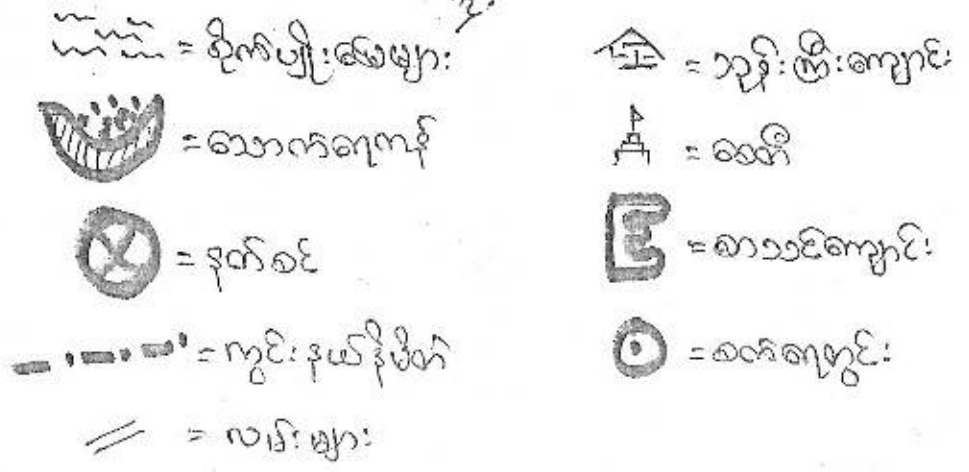 = စိုက်ပျိုးမြေများ
= သောက်ရေကန်
= နတ်စင်
= ကွင်းနယ်နိမိတ်
= လမ်းများ
= ဘုန်းကြီးကျောင်း
= စေတီ
= စာသင်ကျောင်း
= စက်ရေတွင်း